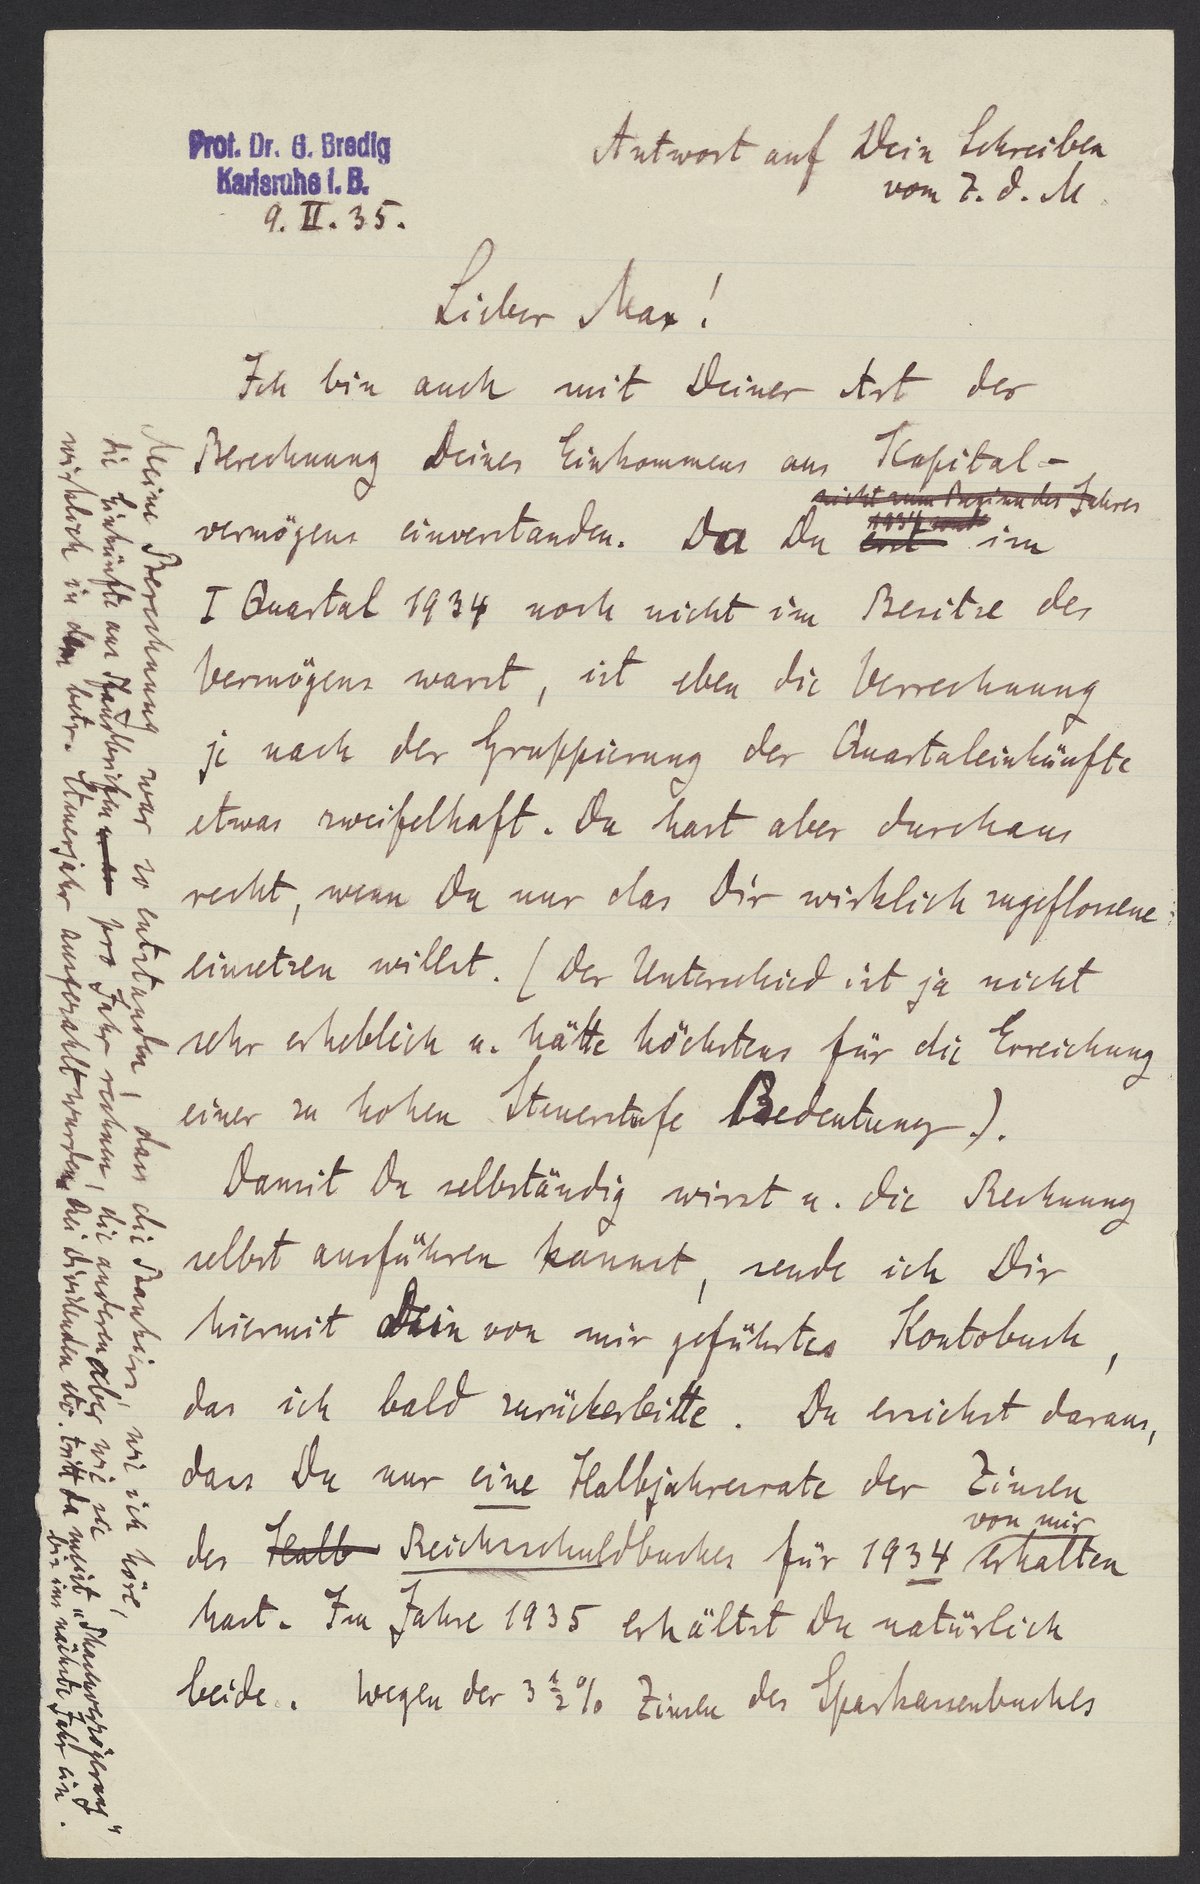 Prof. Dr. G. Bredig
Karlsruhe i. B.
9. II. 35.
Antwort auf Dein Schreiben
vom 7. d. M.
Lieber Max!
Ich bin auch mit Deiner Art der
Berechnung Deines Einkommens aus Kapital-
nicht zum Beginn des Jahres
1934 sond
vermögens einverstanden. Da Du erst im
I Quartal 1934 noch nicht im Besitze des
Vermögens warst, ist eben die Verrechnung
je nach der Gruppierung der Quartaleinkünfte
etwas zweifelhaft. Du hast aber durchaus
recht, wenn Du nur das Dir wirklich zugeflossene
einsetzen willst. (Der Unterschied ist ja nicht
sehr erheblich u. hätte höchstens für die Erreichung
einer zu hohen Steuerstufe Bedeutung.).
Damit Du selbständig wirst u. die Rechnung
selbst ausführen kannst, sende ich Dir
hiermit Dein von mir geführtes Kontobuch,
das ich bald zurückerbitte. Du ersiehst daraus,
dass Du nur eine Halbjahresrate der Zinsen
von mir
des Halb Reichsschuldbuches für 1934 erhalten
hast. Im Jahre 1935 erhältst Du natürlich
beide. Wegen der 3 1/2 % Zinsen des Sparkassenbuches
Meine Berechnung war so entstanden, dass die Bankiers, wie ich höre,
die Einkünfte aus Pfandbriefen pro Jahr rechnen, die anderen aber wie sie
wirklich in dem betr. Steuerjahr ausgezahlt wurden. Bei Dividenden etc. tritt da meist "Phasenverzögerung"
bis ins nächste Jahr ein.